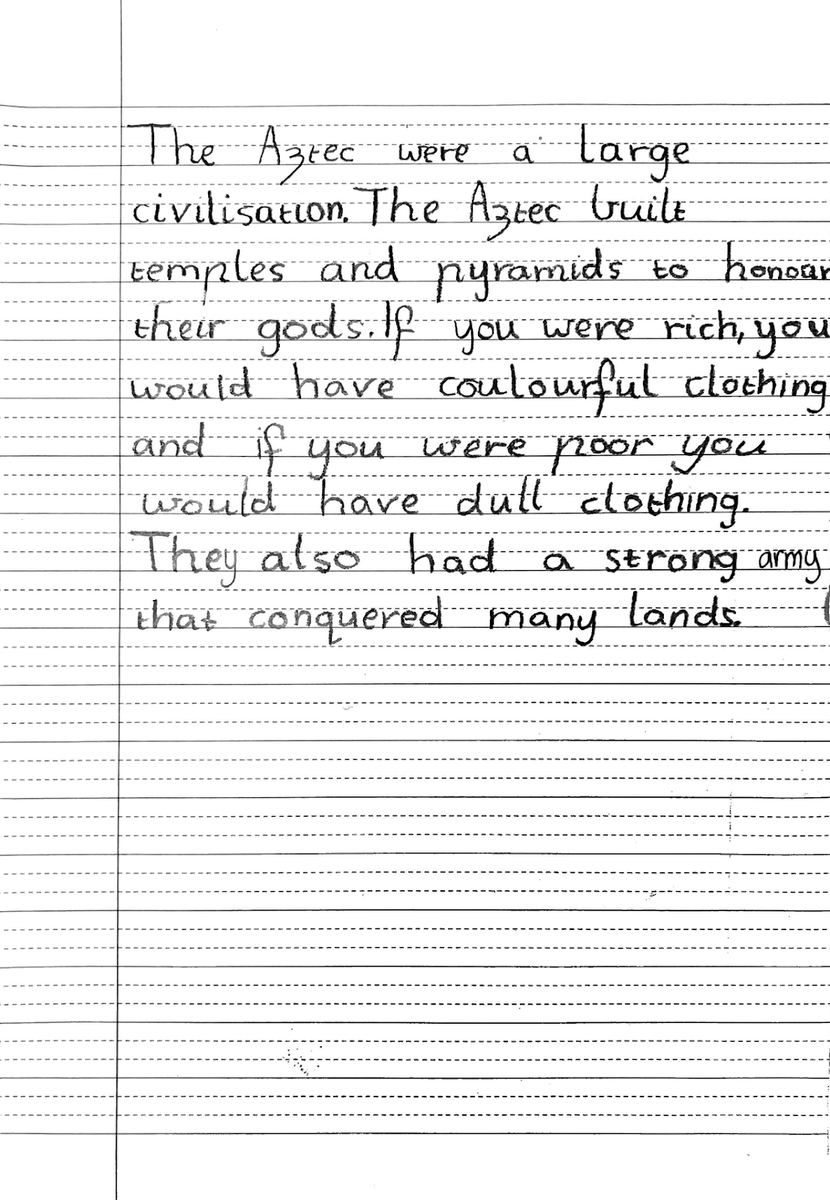 The Aztec were a large
civilisation. The Aztec built
temples and pyramids to honour
their gods. If you were rich, you
would have coulourful clothing
and if you were poor you
would have dull clothing.
They also had a strong army
that conquered many lands.